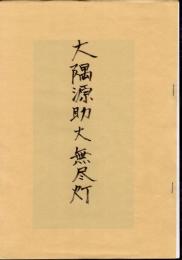 大隅源助大無尽灯